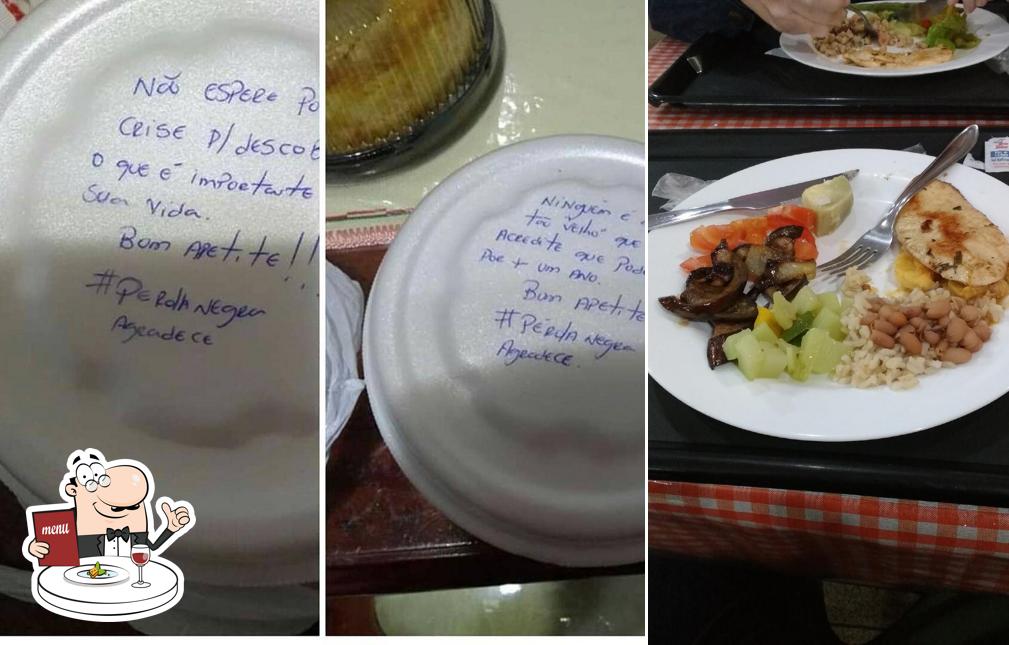 Não ESPERE Po
CRISE P/ DESCOB
O que é importante
Sua Vida.
Bom Apetite!!!
#Pérola Negra
Agradece
Ninguém é
tão velho que
Acredite que Pod
Por + um Ano.
Bom Apetite
#Pérola Negra
Agradece.
menu